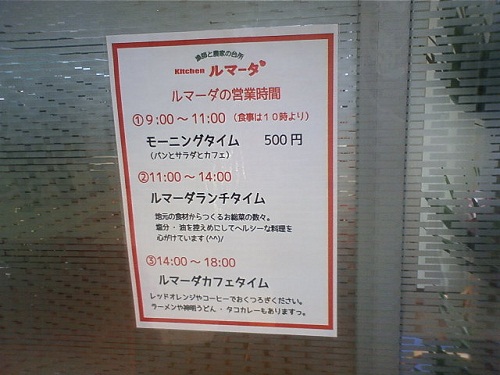 漁師と農家の台所
Kitchen ルマーダ
ルマーダの営業時間
①9:00～11:00（食事は１０時より）
モーニングタイム 500円
（パンとサラダとカフェ）
②11:00～14:00
ルマーダランチタイム
地元の食材からつくるお総菜の数々。
塩分・油を控えめにしてヘルシーな料理を
心がけています(^^)/
③14:00～18:00
ルマーダカフェタイム
レッドオレンジやコーヒーでおくつろぎください。
ラーメンや神明うどん・タコカレーもありますっ。